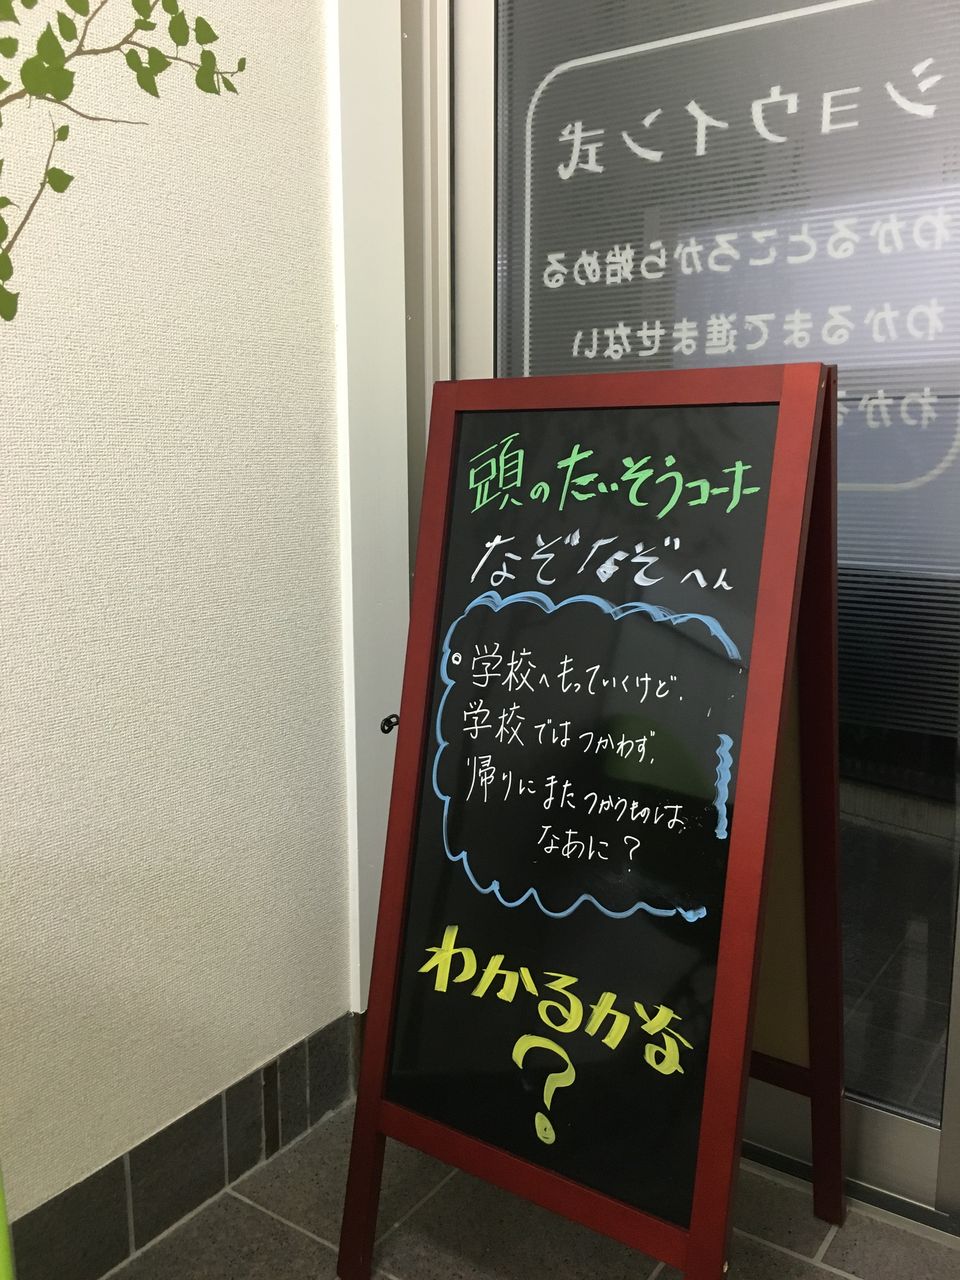 ショウイン式
わかるところから始める
わかるまで進ませない
わかる
頭のたいそうコーナー
なぞなぞへん
。学校へもっていくけど、
学校ではつかわず、
帰りにまたつかうものは
なあに?
わかるかな
?